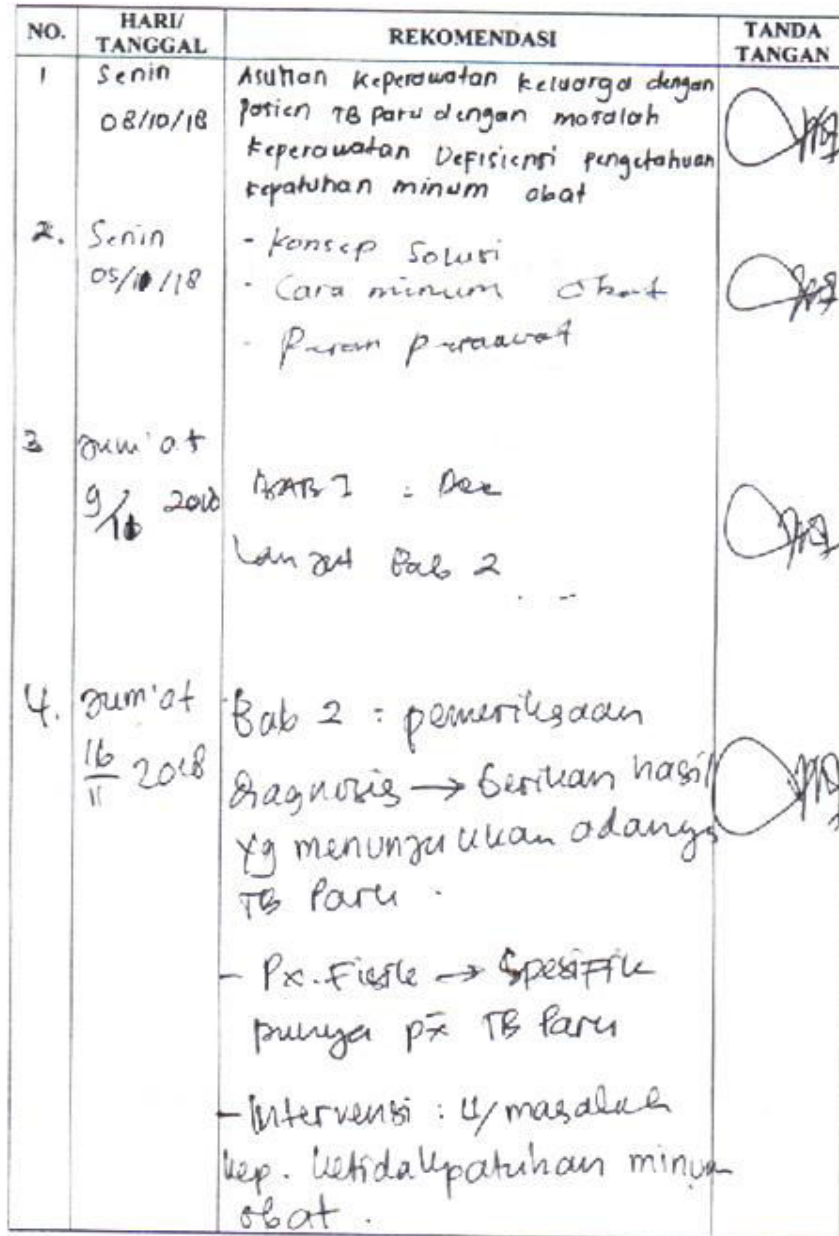 NO. HARI/ TANGGAL REKOMENDASI TANDA TANGAN
1 Senin 08/10/18 Asuhan Keperawatan Keluarga dengan
Pasien TB Paru dengan masalah
Keperawatan Defisiensi pengetahuan
kepatuhan minum obat
2. Senin 05/11/18 - Konsep Solusi
- Cara minum Obat
- Peran perawat
3 Jum'at 9/11 2018 BAB I : Acc
Lanjut Bab 2
4. Jum'at 16/11 2018 Bab 2 : pemeriksaan
diagnosis → berikan hasil
yg menunjukkan adanya
TB Paru.
- Px. Fisik → Spesifik
punya px TB Paru
- Intervensi : u/ masalah
kep. ketidakpatuhan minum
obat.